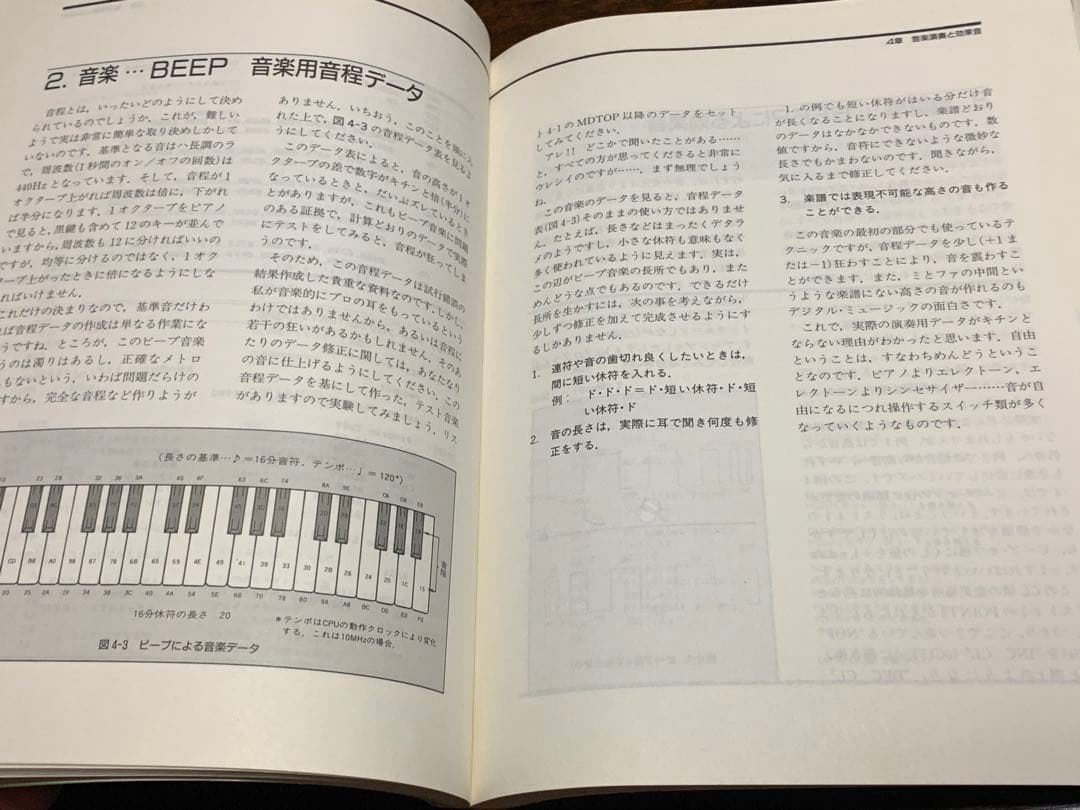 2. 音楽…BEEP 音楽用音程データ
音程とは，いったいどのようにして決め
られているのでしょうか．これが，難しい
ようで実は非常に簡単な取り決めしかして
いないのです．基準となる音はハ長調のラ
で，周波数(1秒間のオン／オフの回数)は
440Hzとなっています．そして，音程が1
オクターブ上がれば周波数は倍に，下がれ
ば半分になります．1オクターブをピアノ
で見ると，黒鍵も含めて12のキーが並んで
いますから，周波数も12に分ければいいの
ですが，均等に分けるのではなく，1オク
ターブ上がったときに倍になるようにしな
ればいけません．
これだけの決まりなので，基準音だけわ
ば音程データの作成は単なる作業にな
うですね．ところが，このビープ音楽
うのは濁りはあるし，正確なメトロ
もないという，いわば問題だらけの
すから，完全な音程など作りようが
ありません．いちおう，このことを頭に入
れた上で，図4-3の音程データ表を見るよ
うにしてください．
このデータ表によると，音の高さが1オ
クターブの差で数字がキチンと倍(半分)に
なっているときと，だいぶズレているとき
とがありますが，これもビープ音楽に問題
のある証拠で，計算どおりのデータで実際
にテストをしてみると，音程が狂ってしま
うのです．
そのため，この音程データは試行錯誤の
結果作成した貴重な資料なのです．しかし，
私が音楽的にプロの耳をもっているという
わけではありませんから，あるいは音程に
若干の狂いがあるかもしれません．そのあ
たりのデータ修正に関しては，あなたなり
の音に仕上げるようにしてください．この
音程データを基にして作った，テスト音楽
がありますので実験してみましょう．リス
(長さの基準…♪＝16分音符．テンポ…♩＝120*)
16分休符の長さ 20
＊テンポはCPUの動作クロックにより変化
する．これは10MHzの場合．
音程
図4-3 ビープによる音楽データ
4章 音楽演奏と効果音
ト4-1のMDTOP以降のデータをセット
してみてください．
アレ!! どこかで聞いたことがある……
と，すべての方が思ってくださると非常に
ウレシイのですが……．まず無理でしょう
ね．
この音楽のデータを見ると，音程データ
表(図4-3)そのままの使い方ではありませ
ん．たとえば，長さなどはまったくデタラ
メのようですし，小さな休符も意味もなく
多く使われているように見えます．実は，
この辺がビープ音楽の長所でもあり，また
めんどうな点でもあるのです．できるだけ
長所を生かすには，次の事を考えながら，
少しずつ修正を加えて完成させるようにす
るしかありません．
1. 連符や音の歯切れ良くしたいときは，
間に短い休符を入れる．
例： ド・ド・ド＝ド・短い休符・ド・短
い休符・ド
2. 音の長さは，実際に耳で聞き何度も修
正をする．
1．の例でも短い休符がはいる分だけ音
が長くなることになりますし，楽譜どおり
のデータはなかなかできないものです．数
値ですから，音符にできないような微妙な
長さでもかまわないのです．聞きながら，
気に入るまで修正してください．
3. 楽譜では表現不可能な高さの音も作る
ことができる．
この音楽の最初の部分でも使っているテ
クニックですが，音程データを少し(+1ま
たは−1)狂わすことにより，音を震わすこ
とができます．また，ミとファの中間とい
うような楽譜にない高さの音が作れるのも
デジタル・ミュージックの面白さです．
これで，実際の演奏用データがキチンと
ならない理由がわかったと思います．自由
ということは，すなわちめんどうというこ
となのです．ピアノよりエレクトーン，エ
レクトーンよりシンセサイザー……音が自
由になるにつれ操作するスイッチ類が多く
なっていくようなものです．